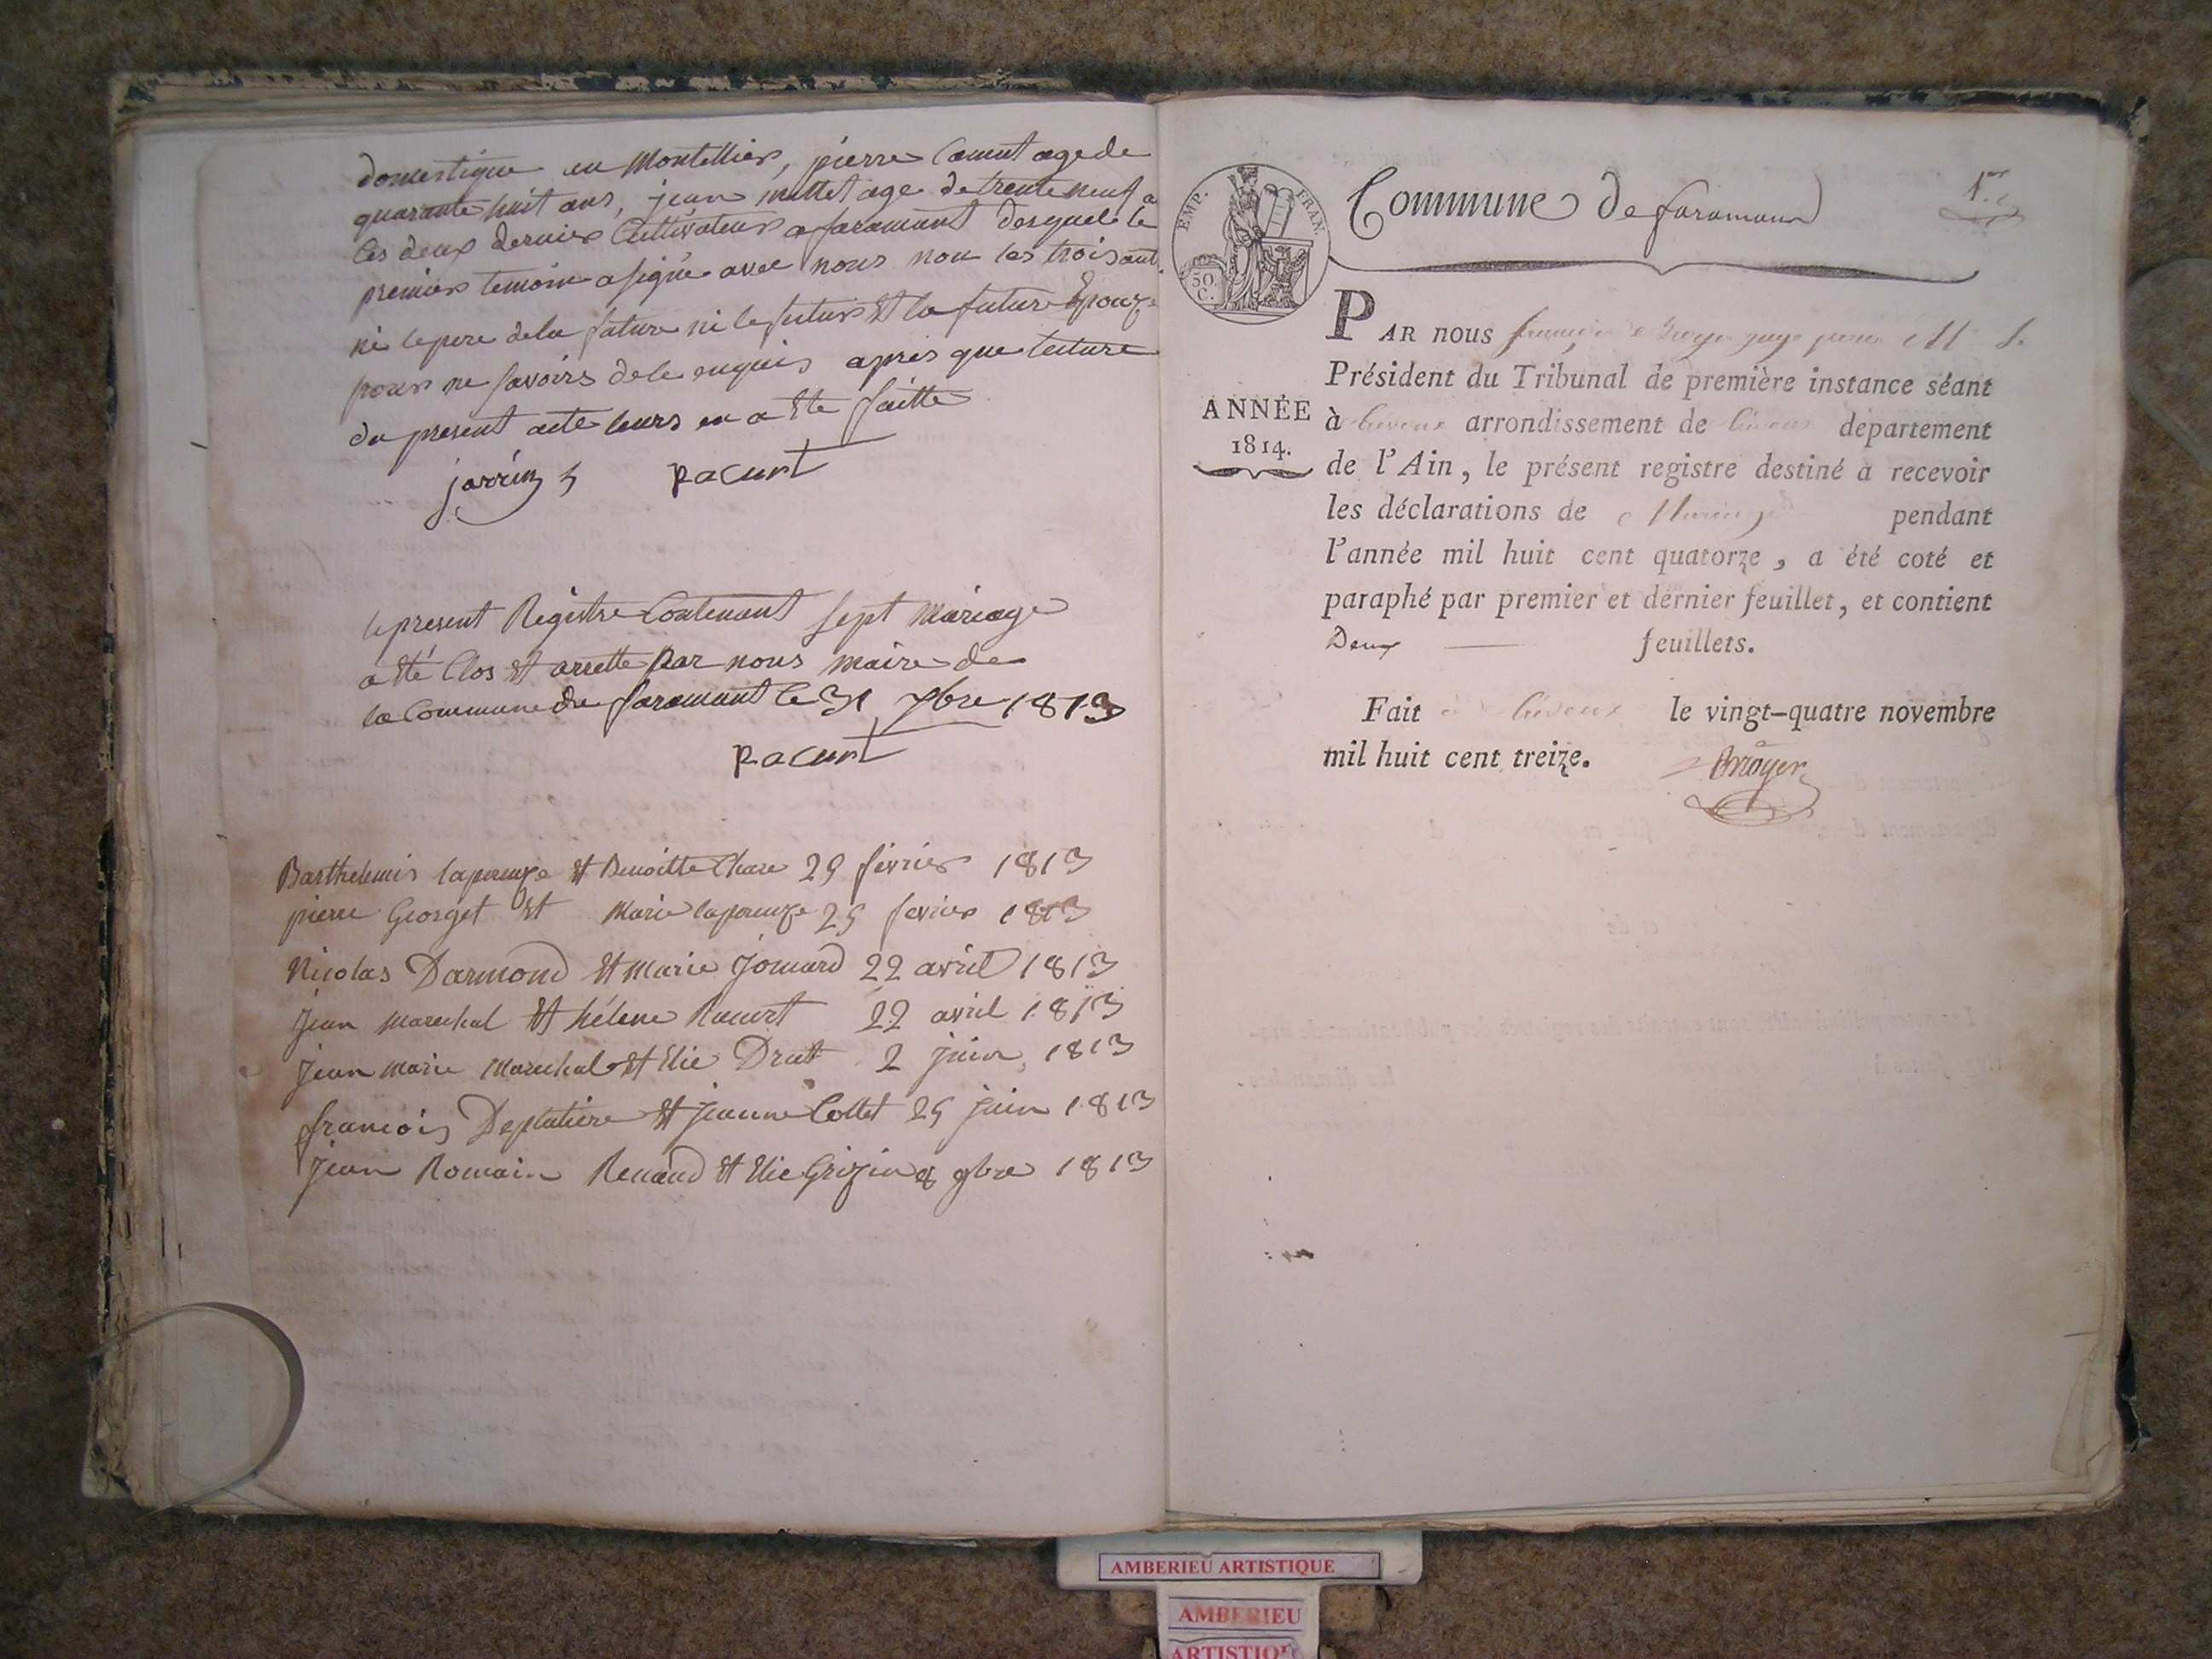 domestique en Montellier, pierre Comut age de
quarante huit ans, jean mollet age de trente neuf a
les deux dernier Cultivateur a faramant desquels le
premier temoin a signé avec nous non les trois aut.
ni le pere de la future ni le futur et la future Epouze
pour ne savoirs de le enquis apres que lecture
du present acte leurs en a ete faitte
jarrin racurt
le present Registre Contenant sept Mariage
a eté Clos et arrette par nous maire de
la Commune de faramant le 31 xbre 1813
racurt
Barthelemis lapouze et Benoitte Chare 25 fevrier 1813
pierre Georget et Marie lapouze 25 fevrier 1813
Nicolas Darmond et Marie Jomard 22 avril 1813
Jean Marechal et hélene Racurt 22 avril 1813
Jean marie Marechal et Elie Drut 2 juin 1813
francois Deplatiere et Jeanne Collet 25 juin 1813
Jean Romain Renaud et Elie Grizin 8 9bre 1813
Commune de faramant
1.er
EMP. FRAN.
50 C.
PAR nous
Président du Tribunal de première instance séant
ANNÉE
1814.
à trevoux arrondissement de trevoux département
de l'Ain, le présent registre destiné à recevoir
les déclarations de Mariage pendant
l'année mil huit cent quatorze, a été coté et
paraphé par premier et dernier feuillet, et contient
Deux feuillets.
Fait à trevoux le vingt-quatre novembre
mil huit cent treize.
Broyer
AMBERIEU ARTISTIQUE
AMBERIEU
ARTISTIQUE